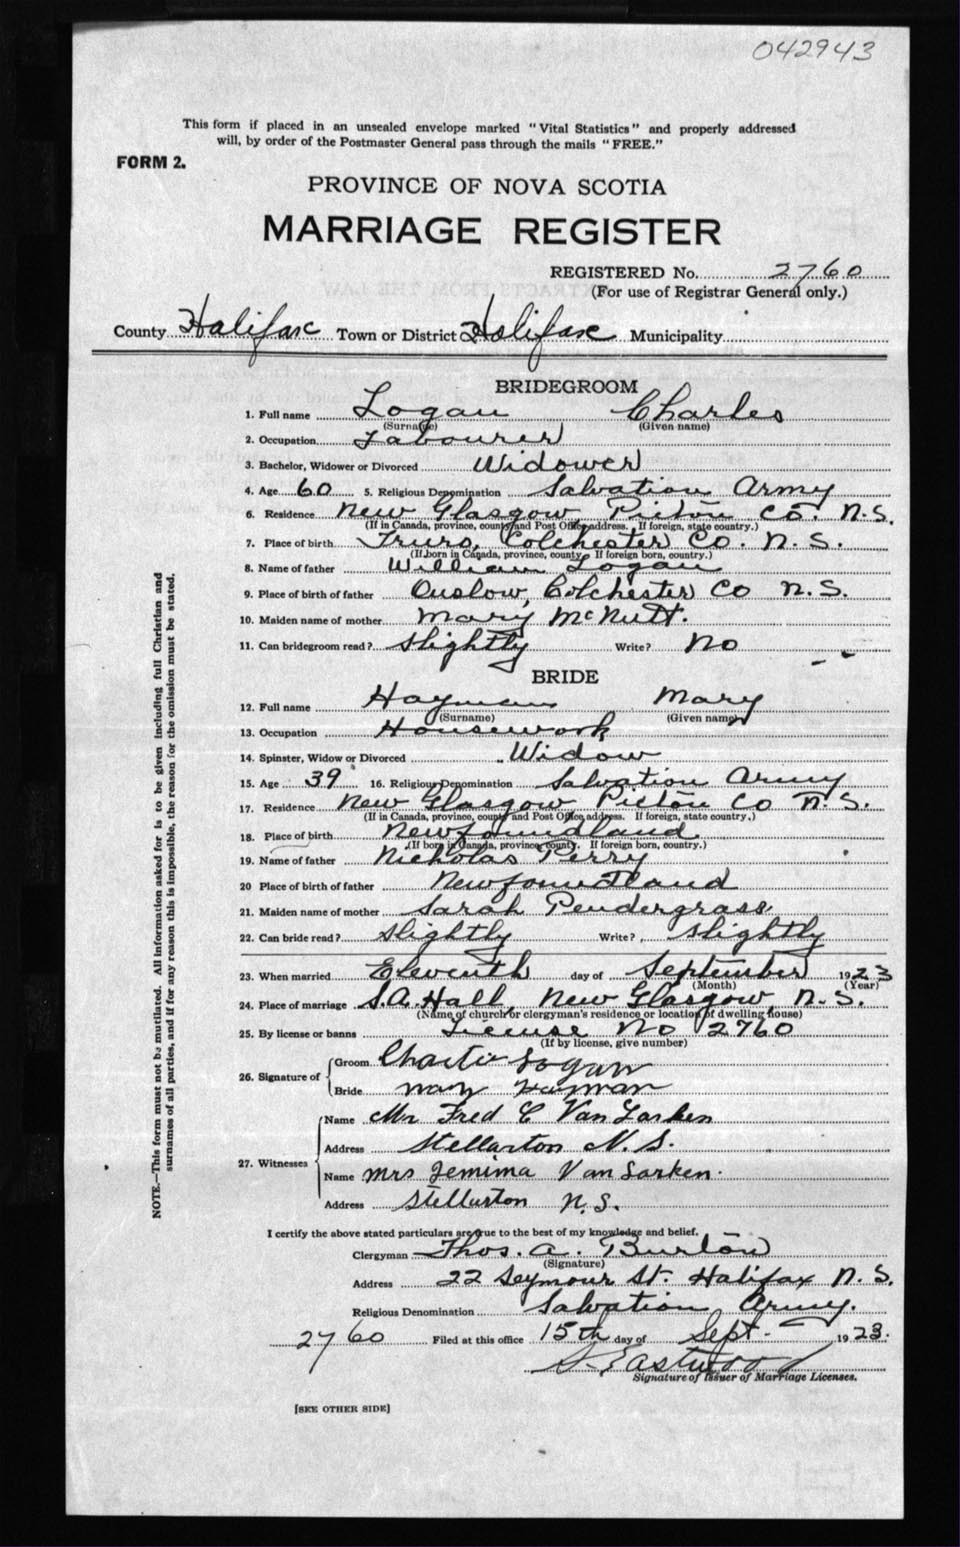 042943
This form if placed in an unsealed envelope marked "Vital Statistics" and properly addressed
will, by order of the Postmaster General pass through the mails "FREE."
FORM 2.
PROVINCE OF NOVA SCOTIA
MARRIAGE REGISTER
REGISTERED No. 2760
(For use of Registrar General only.)
County Halifax Town or District Halifax Municipality
BRIDEGROOM
1. Full name Logan Charles
(Surname) (Given name)
2. Occupation Labourer
3. Bachelor, Widower or Divorced Widower
4. Age 60 5. Religious Denomination Salvation Army
6. Residence New Glasgow, Pictou Co. N.S.
(If in Canada, province, county and Post Office address. If foreign, state country.)
7. Place of birth Truro, Colchester Co. N.S.
(If born in Canada, province, county. If foreign born, country.)
8. Name of father William Logan
9. Place of birth of father Onslow, Colchester Co N.S.
10. Maiden name of mother Mary McNutt.
11. Can bridegroom read? Slightly Write? No
BRIDE
12. Full name Hayman Mary
(Surname) (Given name)
13. Occupation Housework
14. Spinster, Widow or Divorced Widow
15. Age 39 16. Religious Denomination Salvation Army
17. Residence New Glasgow Pictou Co N.S.
(If in Canada, province, county and Post Office address. If foreign, state country.)
18. Place of birth Newfoundland
(If born in Canada, province, county. If foreign born, country.)
19. Name of father Nicholas Perry
20 Place of birth of father Newfoundland
21. Maiden name of mother Sarah Pendergrass
22. Can bride read? Slightly Write? Slightly
23. When married Eleventh day of September 1923
(Month) (Year)
24. Place of marriage S.A. Hall, New Glasgow, N.S.
(Name of church or clergyman's residence or location of dwelling house)
25. By license or banns License No 2760
(If by license, give number)
26. Signature of Groom Charlie Logan
Bride Mary Hayman
27. Witnesses Name Mr Fred C Van Larken
Address Stellarton N.S.
Name Mrs Jemima Van Larken.
Address Stellarton N.S.
I certify the above stated particulars are true to the best of my knowledge and belief.
Clergyman Thos. A. Burton
(Signature)
Address 22 Seymour St. Halifax N.S.
Religious Denomination Salvation Army.
2760 Filed at this office 15th day of Sept. 1923.
S. Eastwood
Signature of Issuer of Marriage Licenses.
[SEE OTHER SIDE]
NOTE.—This form must not be mutilated. All information asked for is to be given including full Christian and
surnames of all parties, and if for any reason this is impossible, the reason for the omission must be stated.